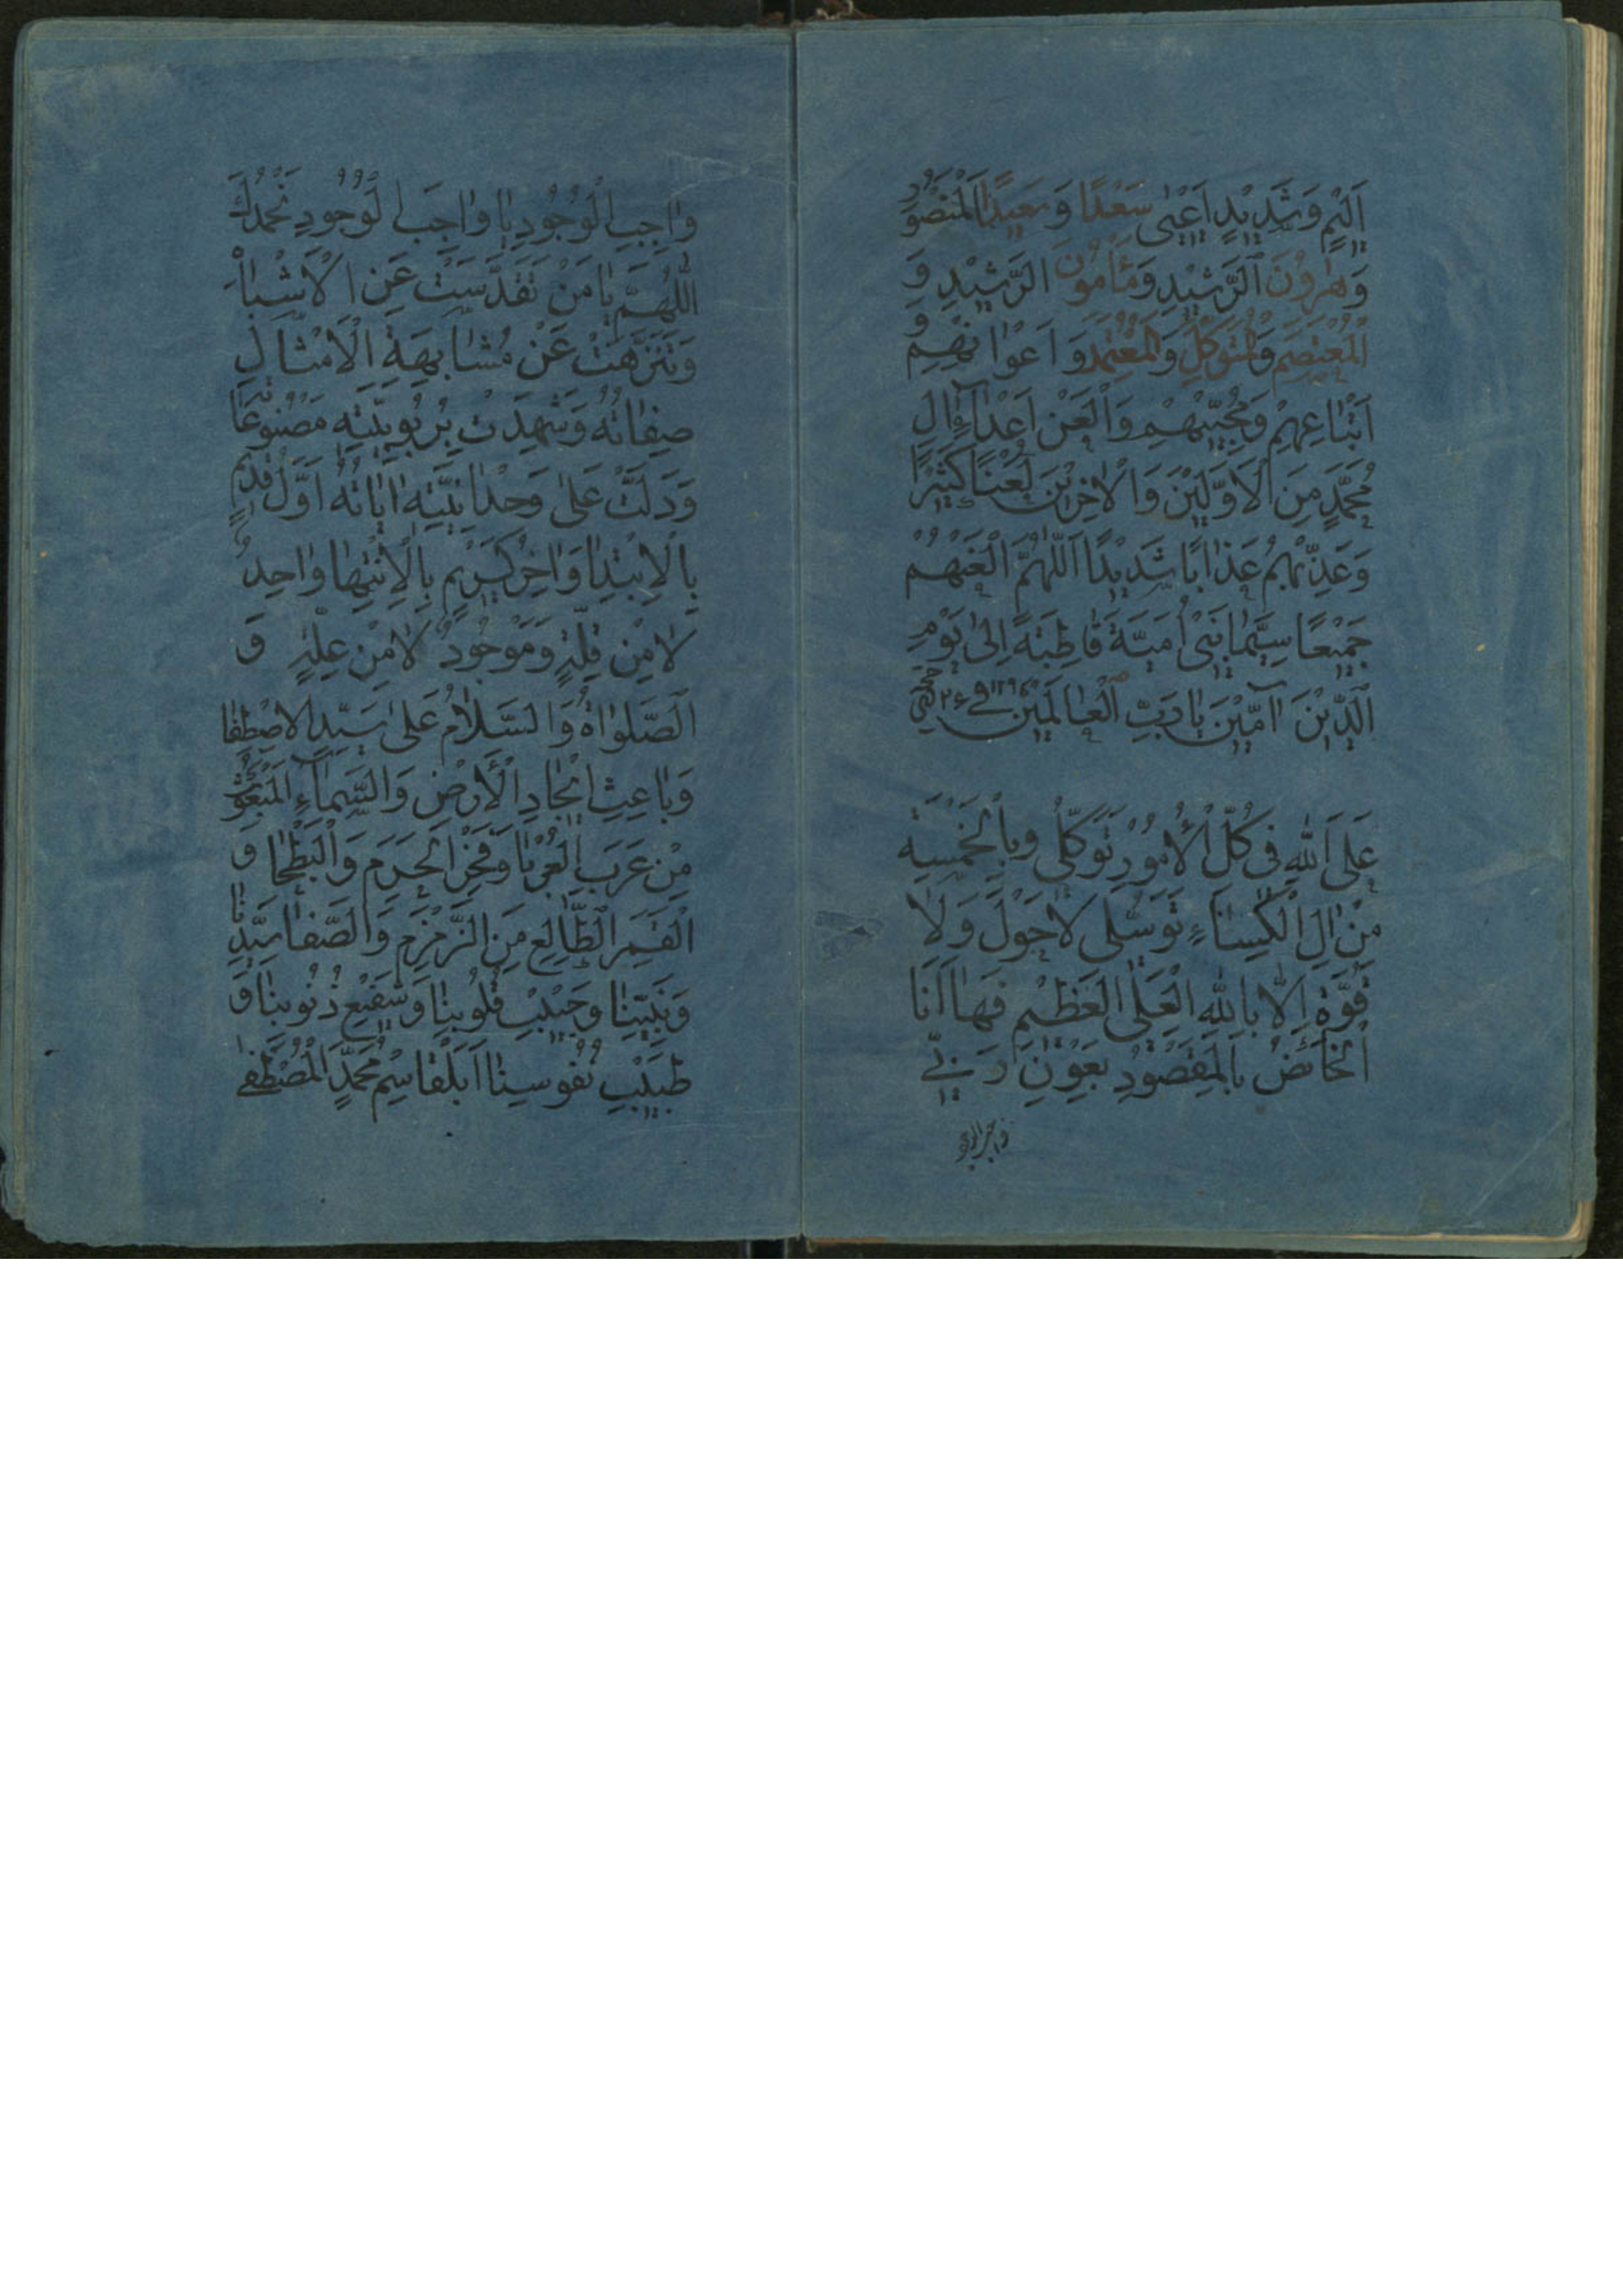 اَلِیْمٍ وَشَدِیْدٍ اَعْنٖی سَعْدًا وَسَعِیْدًا اَلْمَنْصُوْرِ
وَهٰرُوْنَ الرَّشِیْدِ وَمَأْمُوْنَ الرَّشِیْدِ وَ
الْمُعْتَصِمِ وَالْمُتَوَکِّلِ وَالْمُعْتَمِدِ وَ اَعْوٰانِهِمْ وَ
اَتْبٰاعِهِمْ وَمُحِبّٖیْهِمْ وَالْعَنْ اَعْدٰاءِ اٰلِ
مُحَمَّدٍ مِنَ الْاَوَّلٖیْنَ وَالْاٰخِرٖیْنَ لَعْنًا کَثِیْرًا
وَعَذِّبْهُمْ عَذٰابًا شَدٖیْدًا اَللّٰهُمَّ الْعَنْهُمْ
جَمٖیْعًا سِیَّمٰا بَنٖی اُمَیَّةَ قٰاطِبَةً اِلیٰ یَوْمِ
الدّٖیْنِ آمّٖیْنَ یٰا رَبَّ الْعٰالَمٖیْنَ فی
عَلَی اللّٰهِ فی کُلِّ الْاُمُوْرِ تَوَکُّلٖی وَبِالْخَمْسَةِ
مِنْ اٰلِ الْکِسٰاءِ تَوَسُّلٖی لٰا حَوْلَ وَلٰا
قُوَّةَ اِلّٰا بِاللّٰهِ الْعَلِیِّ الْعَظٖیْمِ فَهٰا اَنَا
اَلْخٰائِضُ بِالْمَقْصُوْدِ بِعَوْنِ رَبّٖی
واجب الوجود
وٰاجِبِ الْوُجُوْدِ یٰا وٰاجِبَ الْوُجُوْدِ نَحْمَدُكَ
اللّٰهُمَّ یٰا مَنْ تَقَدَّسَتْ عَنِ الْاَشْبٰاهِ
وَتَنَزَّهَتْ عَنْ مُشٰابَهَةِ الْاَمْثٰالِ
صِفٰاتُهُ وَشَهِدَتْ بِرُبُوْبِیَّتِهِ مَصْنُوْعٰاتُهُ
وَدَلَّتْ عَلیٰ وَحْدٰانِیَّتِهِ اٰیٰاتُهُ اَوَّلٌ قَدٖیْمٌ
بِالْاِبْتِدٰا وَاٰخِرٌ کَرٖیْمٌ بِالْاِنْتِهٰا وٰاحِدٌ
لٰا مِنْ قِلَّةٍ وَمَوْجُوْدٌ لٰا مِنْ عِلَّةٍ وَ
الصَّلَوٰاةُ وَالسَّلٰامُ عَلیٰ سَیِّدِ الْاَصْطِفٰا
وَبٰاعِثِ اٖیْجٰادِ الْاَرْضِ وَالسَّمٰاءِ الْمَبْعُوْثِ
مِنْ عَرَبِ الْعَرْبٰا وَفَخْرِ الْحَرَمِ وَالْبَطْحٰا وَ
الْقَمَرِ الطّٰالِعِ مِنَ الزَّمْزَمِ وَالصَّفٰا سَیِّدِنٰا
وَنَبِیِّنٰا وَحَبٖیْبِ قُلُوْبِنٰا وَشَفٖیْعِ ذُنُوْبِنٰا وَ
طَبٖیْبِ نُفُوْسِنٰا اَبَلْقٰاسِمُ مُحَمَّدٍ الْمُصْطَفٰی